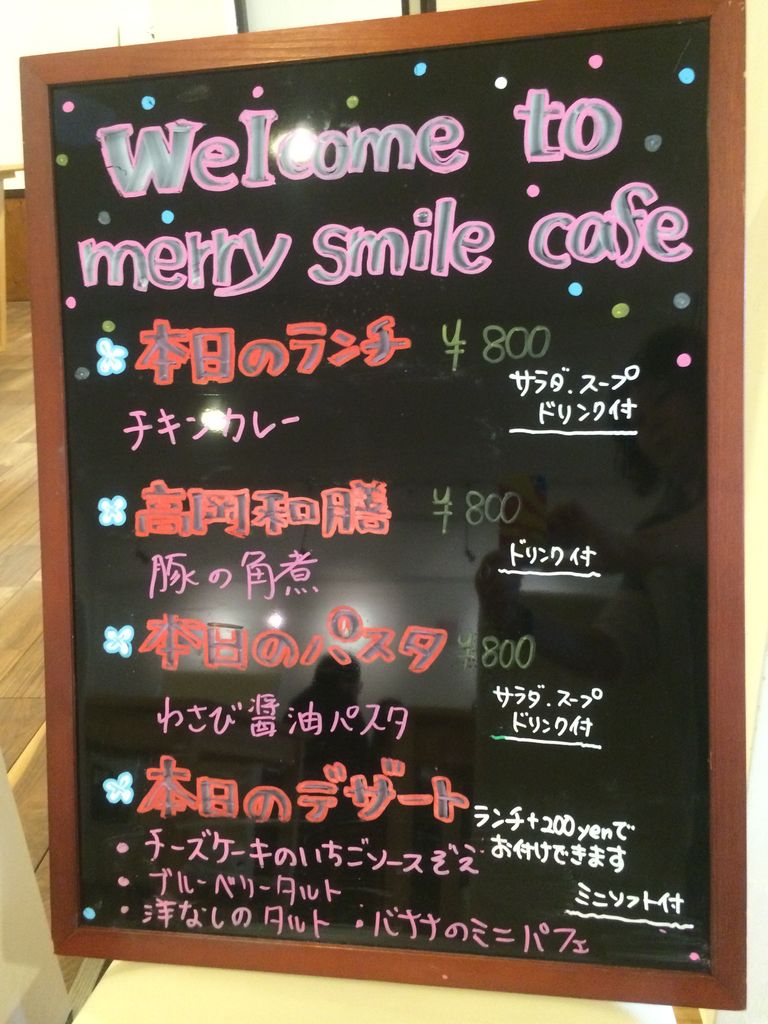 Welcome to
merry smile cafe
本日のランチ ¥800
サラダ.スープ
ドリンク付
チキンカレー
高岡和膳 ¥800
ドリンク付
豚の角煮
本日のパスタ ¥800
サラダ.スープ
ドリンク付
わさび醤油パスタ
本日のデザート
ランチ+200yenで
お付けできます
・チーズケーキのいちごソースぞえ
・ブルーベリータルト
ミニソフト付
・洋なしのタルト ・バナナのミニパフェ